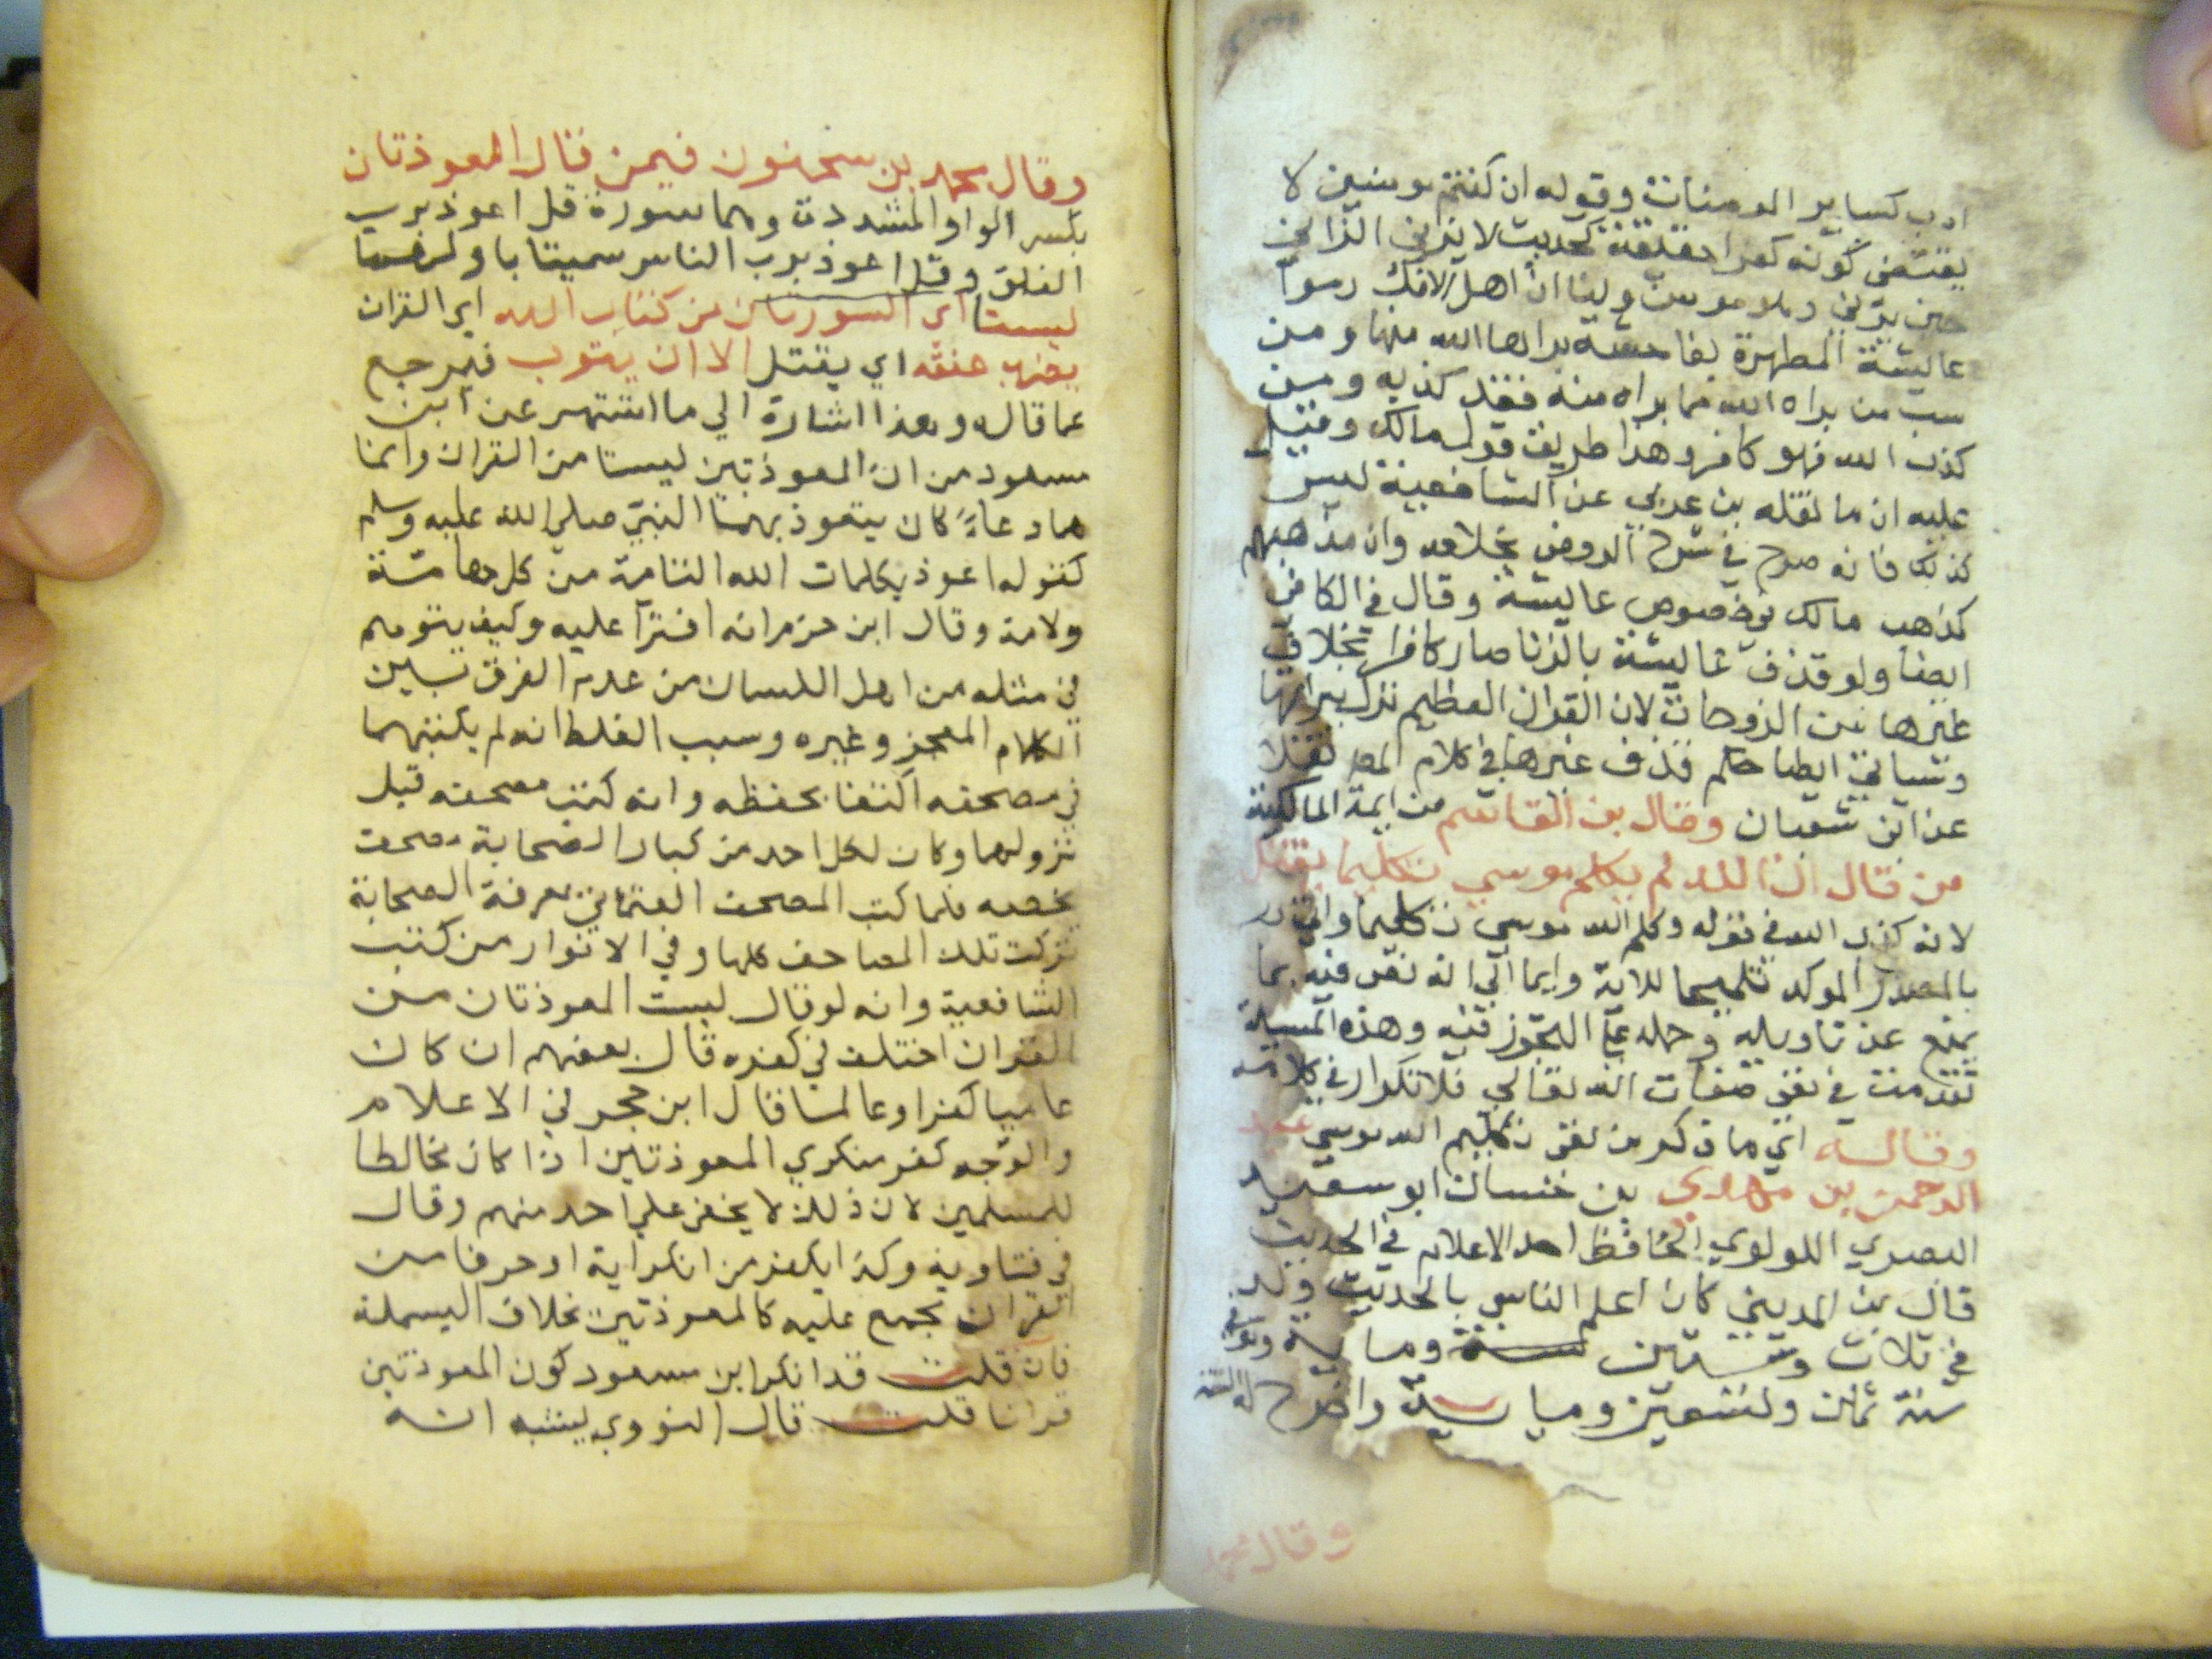 ادب كساير المومنات وقوله ان كنتم مومنين لا
يقتضي كونه كفرا حقيقة كحديث لا يزني الزاني
حين يزني وهو مومن ولنا ان اهل الافك رموا
عايشة المطهرة بفاحشة براها الله منها ومن
سب من براه الله مما براه منه فقد كذبه ومن
كذب الله فهو كافر وهذا طريق قول مالك وقيل
عليه ان ما نقله بن عربي عن الشافعية ليس
كذلك فانه صرح في شرح الروض بخلافه وان مذهبهم
كمذهب مالك بخصوص عايشة وقال في الكافي
ايضا ولو قذف عايشة بالزنا صار كافرا بخلاف
غيرها من الزوجات لان القران العظيم نزل ببراتها
وسياتي ايضا حكم قذف غيرها في كلام المص نقلا
عن ابن شعبان وقال بن القاسم من ايمة المالكية
من قال ان الله لم يكلم موسي تكليما يقتل
لانه كذب الله في قوله وكلم الله موسي تكليما واتي
بالمصدر الموكد تلميحا للاية وايما الي انه نص فيه بما
يمنع عن تاويله وحمله علي التجوز فيه وهذه المسيلة
تقدمت في نفي صفات الله تعالي فلا تكرار في كلامه
وقاله اي ما ذكر من نفي تكليم الله موسي عبد
الرحمن بن مهدي بن حسان ابو سعيد
البصري اللولوي الحافظ احد الاعلام في الحديث
قال بن المديني كان اعلم الناس بالحديث ولد
في ثلاث وستين ومايه وتوفي
سنة ثمان وتسعين ومايية واخرج له الستة
وقال محمد
وقال محمد بن سحنون فيمن قال المعوذتان
بكسر الواو المشددة وهما سورة قل اعوذ برب
الفلق وقل اعوذ برب الناس سميتا باولهما
ليستا اي السورتان من كتاب الله اي القران
يضرب عنقه اي يقتل الا ان يتوب فيرجع
عما قاله وهذا اشارة الي ما اشتهر عن ابن
مسعود من ان المعوذتين ليستا من القران وانما
هما دعاء كان يتعوذ بهما النبي صلي الله عليه وسلم
كقوله اعوذ بكلمات الله التامة من كل هامة
ولامة وقال ابن حزم انه افترا عليه وكيف يتوهم
في مثله من اهل اللسان من عدم الفرق بين
الكلام المعجز وغيره وسبب الغلط انه لم يكتبهما
في مصحفه اكتفا بحفظه وانه كتب مصحفه قبل
نزولهما وكان لكل احد من كبار الصحابة مصحف
يخصه فلما كتب المصحف العثماني بمعرفة الصحابة
تركت تلك المصاحف كلها وفي الانوار من كتب
الشافعية وانه لو قال ليست المعوذتان من
القران اختلف في كفره قال بعضهم ان كان
عاميا كفر او عالما قال ابن حجر في الاعلام
والوجه كفر منكري المعوذتين اذا كان مخالطا
للمسلمين لان ذلك لا يخفي علي احد منهم وقال
في فتاويه وكذا يكفر من انكر اية او حرفا من
القران مجمع عليه كالمعوذتين بخلاف البسملة
فان قلت قد انكر ابن مسعود كون المعوذتين
قرانا قلت قال النووي يشبه انه